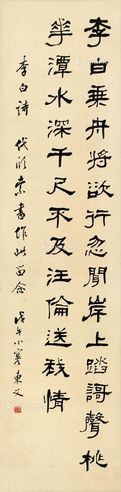 李白乘舟將欲行忽聞岸上踏哥聲桃
華潭水深千尺不及汪倫送我情
李白詩 代頎索書博此留念 戊午小寒東文